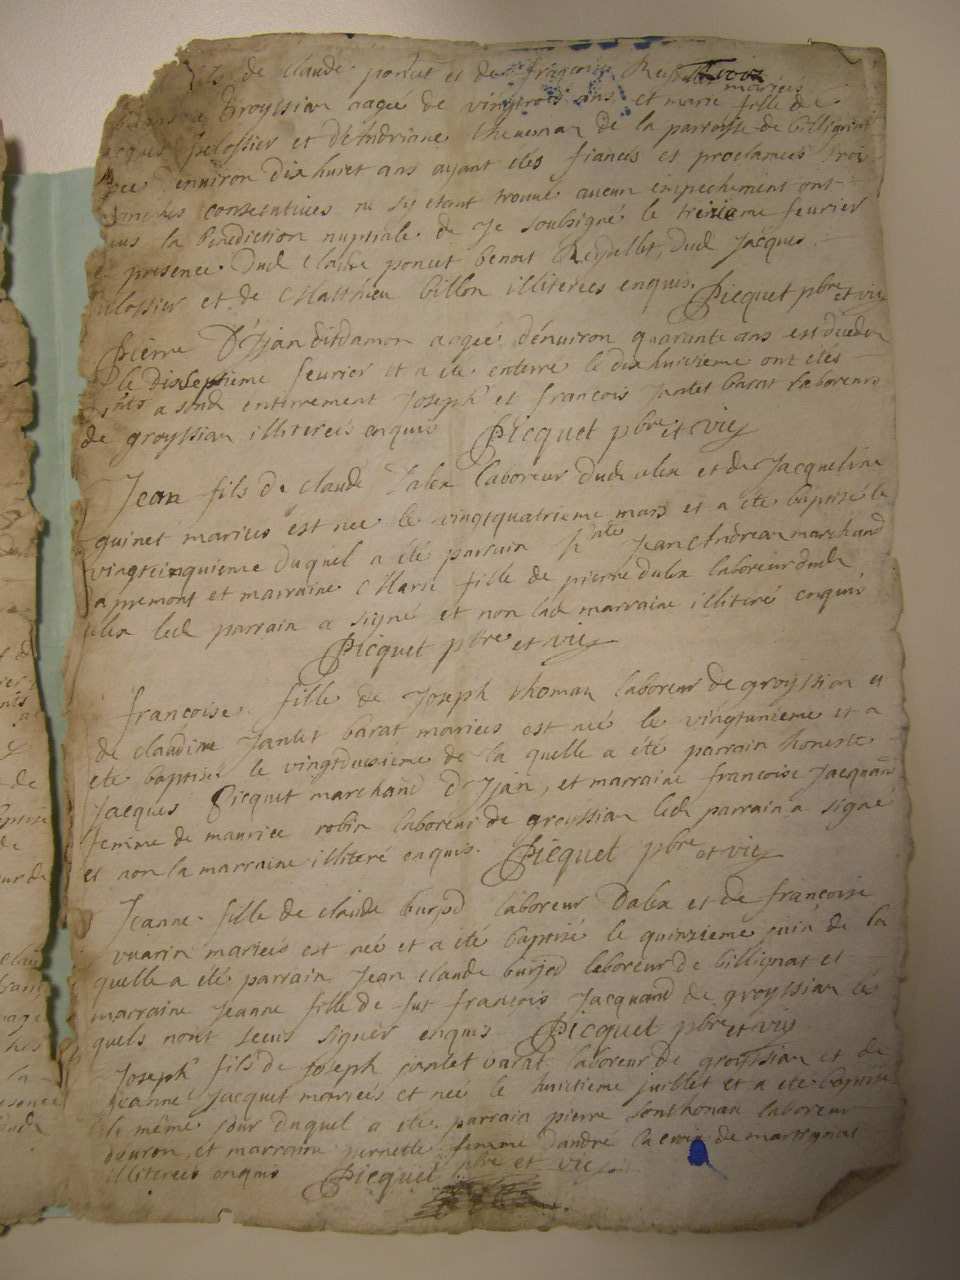 fils de claude poncet et de françoise Rey
mariés
groyssian aagée de vingttrois ans et marie fille de
Jacques pelossier et dAndriane thevenan de la parroisse de billigniat
denuiron dix huict ans ayant etes fiancés et proclames trois
dimanches consecutives ne sy etant trouué aucun empechement ont
la benediction nuptiale de Je soubsigné le treizieme feurier
presence dud claude poncet benoit Reydellet, dud Jacques
pelossier et de Matthieu billon illiterées enquis. Picquet pbre et vic
Pierre D'Ijan ditdamon aagée dénuiron quarente ans est décedé
le disseptieme feurier et a ete enterre le dixhuitieme ont etes
pnts a sond enterrement Joseph et françois Janlet barat laboreurs
de groyssian illitereés enquis Picquet pbre et vic
Jean fils de claude dalex laboreur dud alex et de Jacqueline
quinet mariées est nee le vingtquatrieme mars et a ete baptisé le
vingtcinquieme duquel a été parrain hnte Jean Andrea marchand
a premont et marraine Marie fille de pierre dalex laboreur dud
alex led parrain a signé et non lad marraine illiteré enquis
Picquet pbre et vic
francoise fille de Joseph thoman laboreur de groyssian et
de claudine Janlet barat mariees est neé le vingtunieme et a
ete baptisé le vingtdeusieme de la quelle a été parrain honeste
Jacques Picquet marchand d'Ijan, et marraine francoise Jacquand
femme de maurice robin laboreur de groyssian led parrain a signé
et non la marraine illiteré enquis. Picquet pbre et vic
Jeanne fille de claude burjod laboreur Dalex et de françoise
vuarin marieés est neé et a été baptisé le quinzieme juin de la
quelle a été parrain Jean claude burjod laboreur de billignat et
marraine Jeanne fille de fut françois Jacquand de groyssian les
quels nont sceus signer enquis Picquet pbre et vic
Joseph fils de Joseph janlet barat laboreur de groyssian et de
Jeanne Jacquet mariées et neé le huictieme juillet et a ete baptisé
le même jour duquel a été parrain pierre Sonthonan laboreur
douron, et marraine pernette femme dandré lacroix de martignat
illiterées enquis Picquet pbre et vic